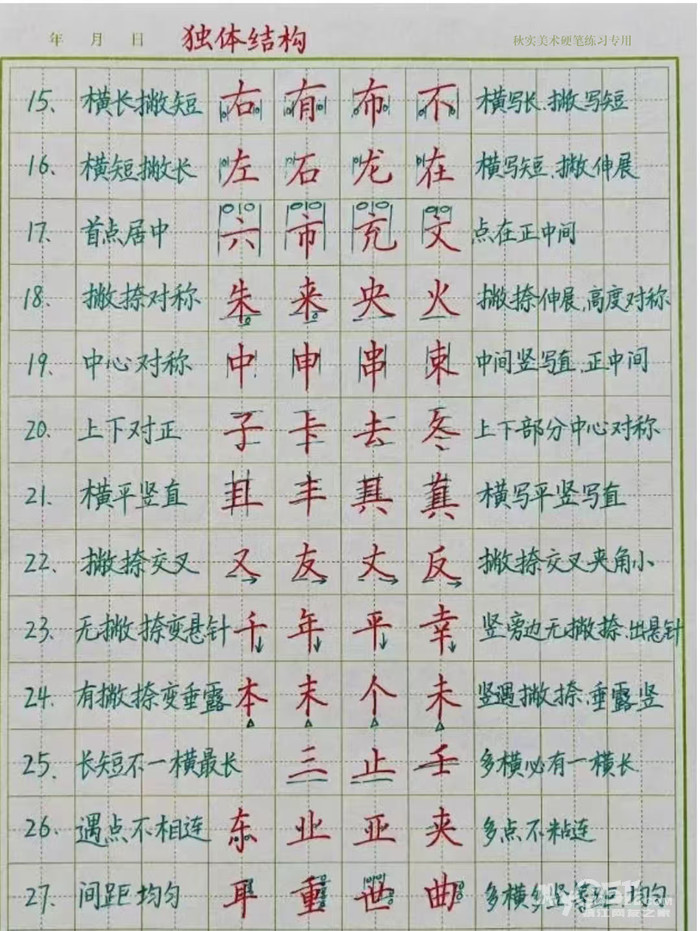 年 月 日 独体结构 秋实美术硬笔练习专用
15、 横长撇短 右 有 布 不 横写长、撇写短
16、 横短撇长 左 石 龙 在 横写短、撇伸展
17、 首点居中 六 市 充 文 点在正中间
18、 撇捺对称 朱 来 央 火 撇捺伸展,高度对称
19、 中心对称 中 申 串 束 中间竖写直,正中间
20、 上下对正 子 卡 去 冬 上下部分中心对称
21、 横平竖直 且 丰 其 真 横写平竖写直
22、 撇捺交叉 又 友 丈 反 撇捺交叉夹角小
23、 无撇捺变悬针 千 年 平 幸 竖旁边无撇捺、出悬针
24、 有撇捺变垂露 本 末 个 未 竖遇撇捺、垂露竖
25、 长短不一横最长 三 止 壬 多横必有一横长
26、 遇点不相连 东 业 亚 夹 多点不粘连
27、 间距均匀 耳 重 世 曲 多横多竖等距均匀